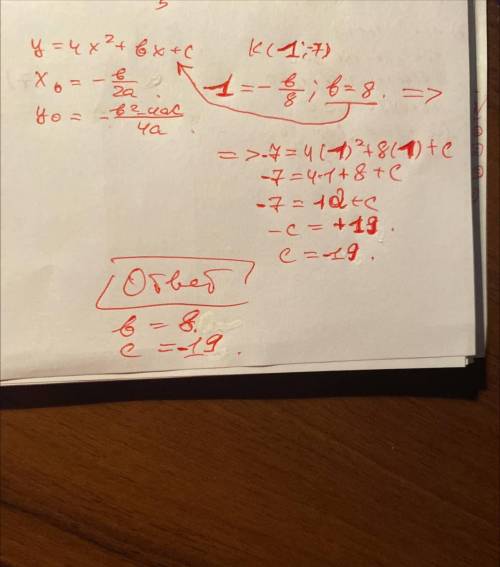 y = 4x² + вx + c    K(1; -7)
x₀ = - в/2a    -1 = - в/8 ; в = 8. =>
y₀ = - в² - 4ac/4a.
=> -7 = 4(-1)² + 8(1) + c
-7 = 4·1 + 8 + c
-7 = 12 + c
-c = +19.
c = -19.
Ответ
в = 8.
c = -19.